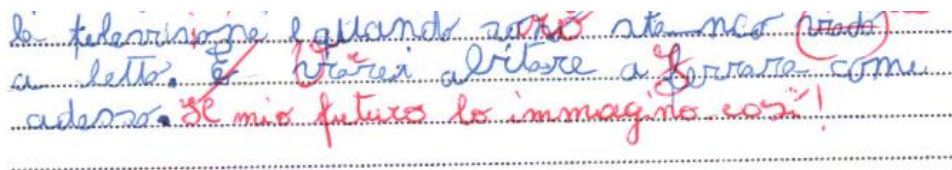 la televisione e quando sono stanco vado
a letto. E vorrei abitare a Ferrara come
adesso. Il mio futuro lo immagino così!